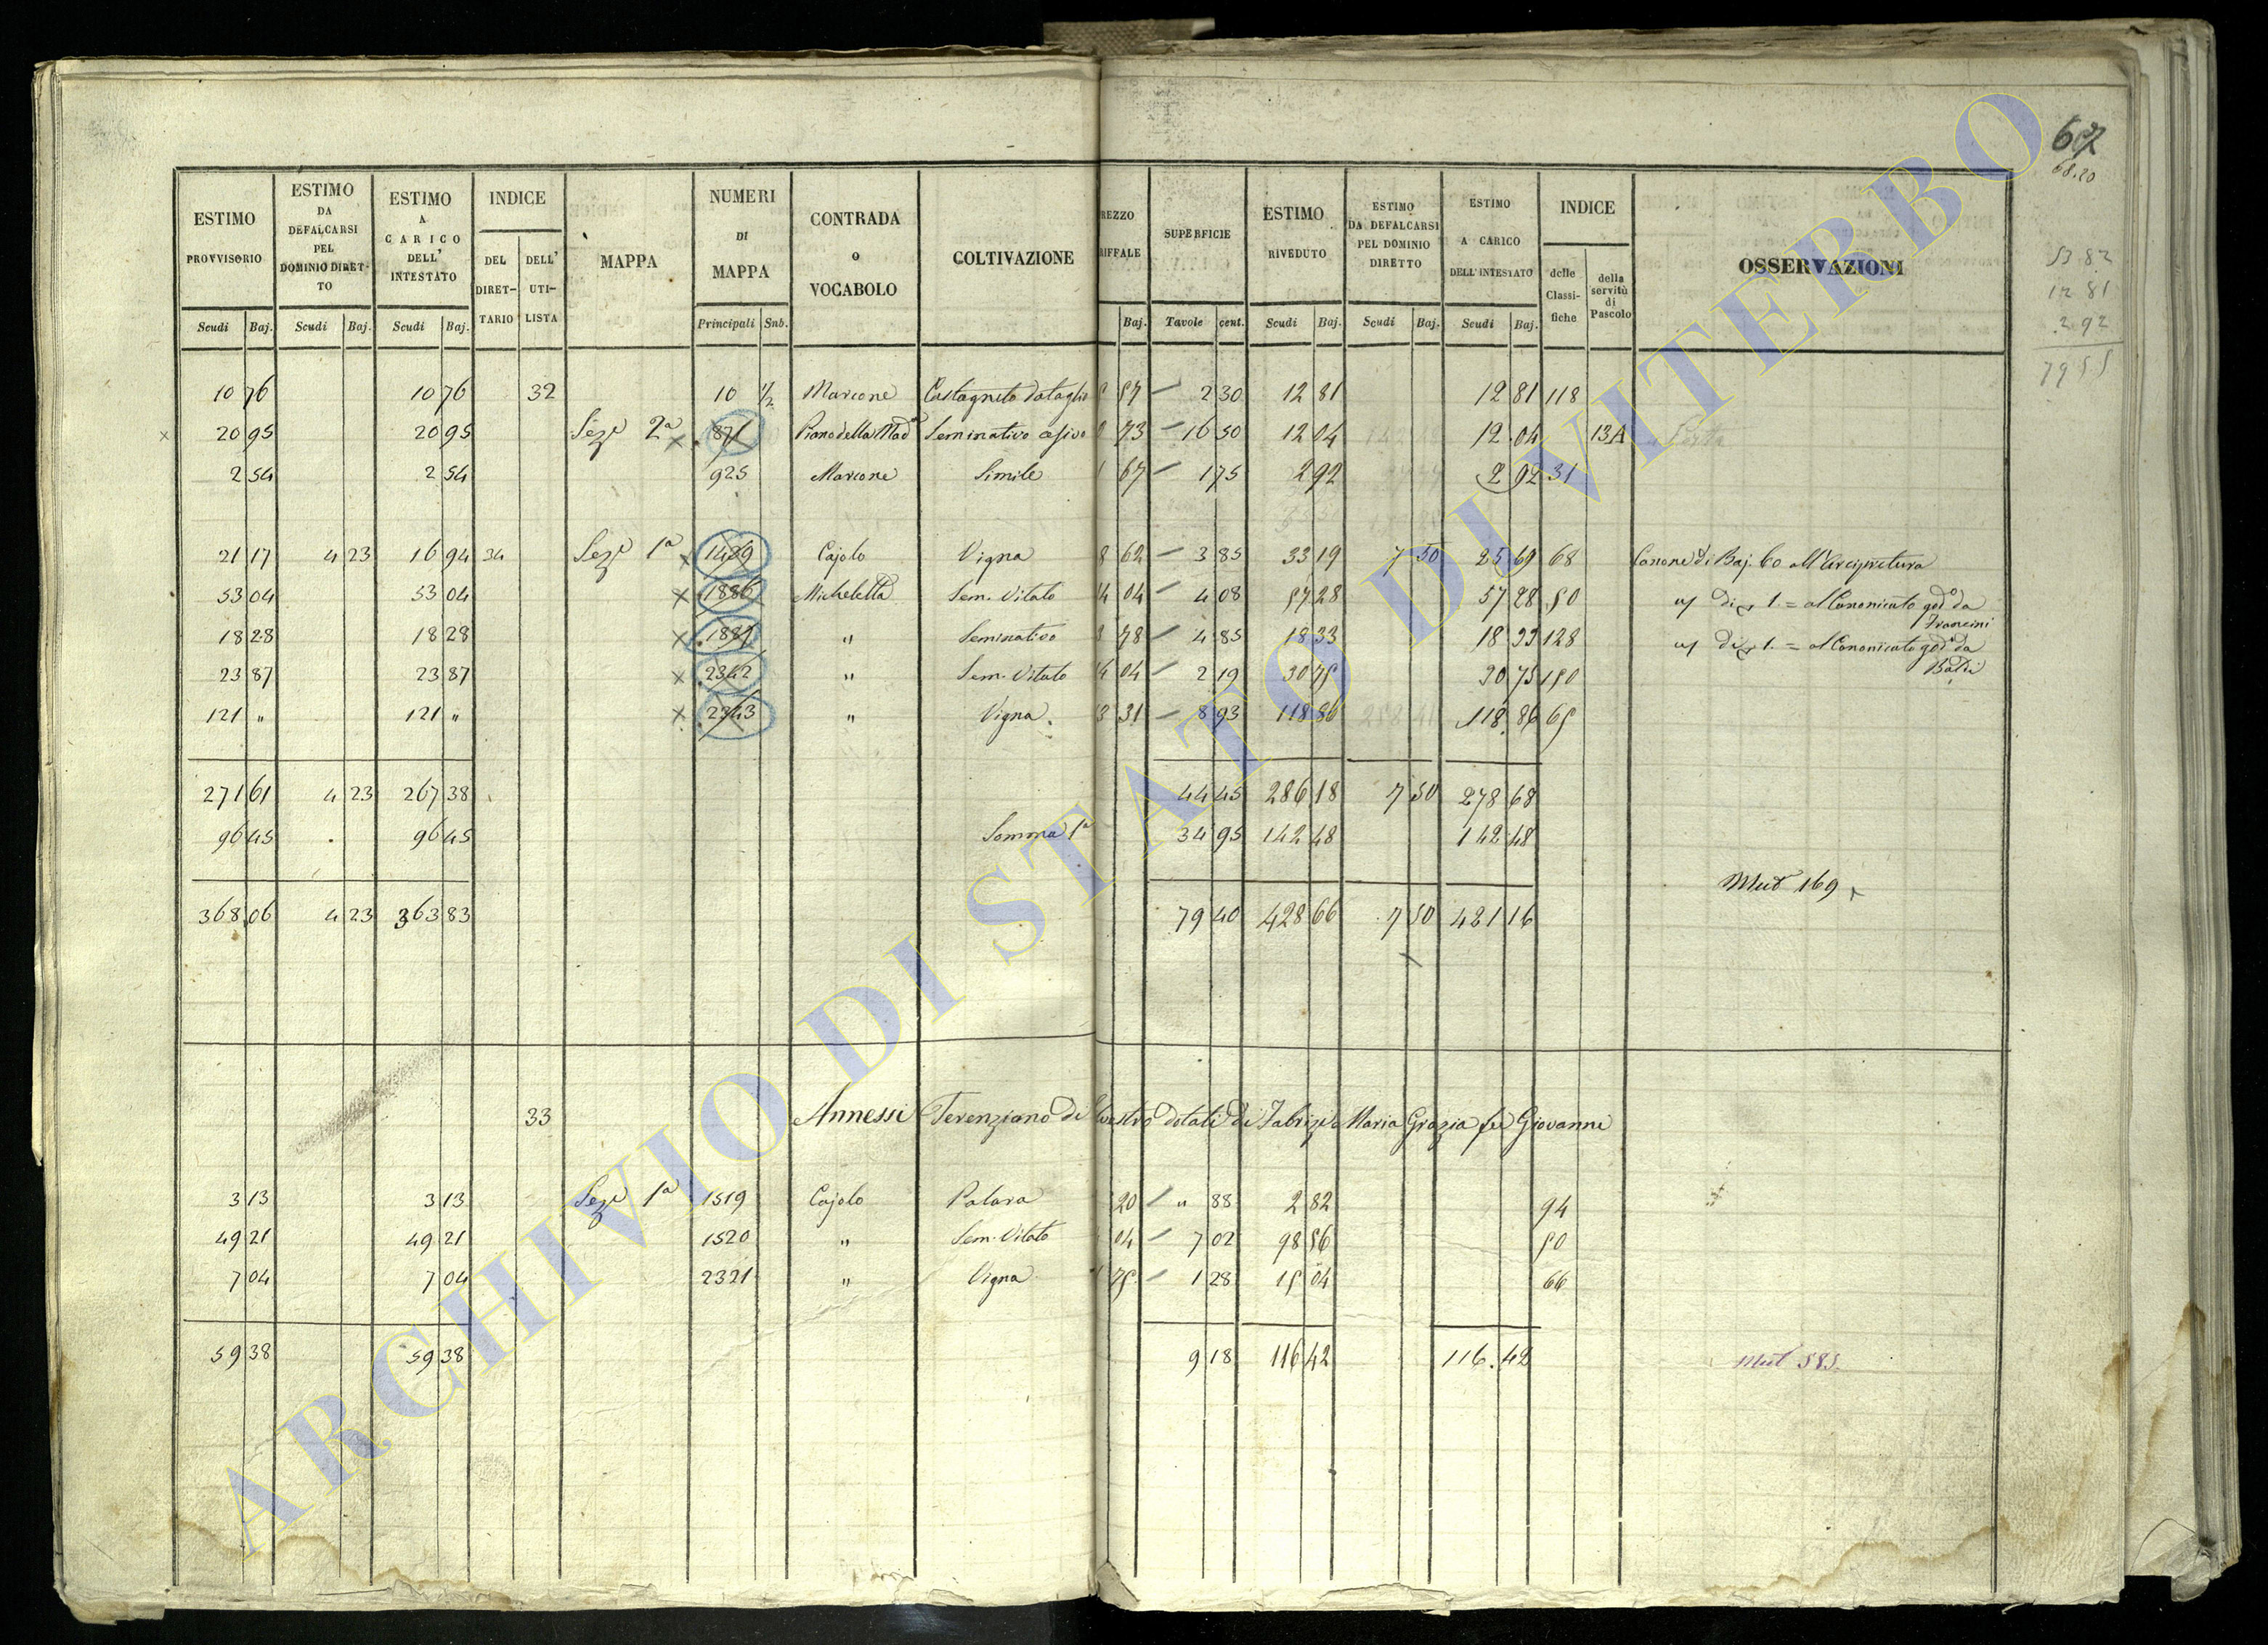 67
68.20
53 82
12 81
2 92
79 55
ESTIMO PROVVISORIO | ESTIMO DA DEFALCARSI PEL DOMINIO DIRET-TO | ESTIMO A CARICO DELL' INTESTATO | INDICE DEL DIRET-TARIO | DELL' UTI-LISTA | MAPPA | NUMERI DI MAPPA | CONTRADA o VOCABOLO | COLTIVAZIONE | REZZO RIFFALE | SUPERFICIE | ESTIMO RIVEDUTO | ESTIMO DA DEFALCARSI PEL DOMINIO DIRETTO | ESTIMO A CARICO DELL'INTESTATO | INDICE delle Classi-fiche | della servitù di Pascolo | OSSERVAZIONI
Scudi Baj. | Scudi Baj. | Scudi Baj. | Principali Sub. | Baj. | Tavole cent. | Scudi Baj. | Scudi Baj. | Scudi Baj.
10 76 10 76 32 10 1/2 Marcone Castagneto da taglio 57 2 30 12 81 12 81 118
20 95 20 95 Seze 2a 871 Piano della Mada Seminativo 73 16 50 12 04 12 04 13A
2 54 2 54 925 Marcone Simile 1 67 1 75 2 92 2 92 31
21 17 4 23 16 94 34 Seze 1a 1489 Cajolo Vigna 8 62 3 85 33 19 7 50 25 69 68 Canone di Baj. 60 all'Arcipretura
53 04 53 04 1886 Micheletta Sem. Vitato 4 04 4 08 57 28 57 28 50 di 1. = al Canonicato godo da Francini
18 28 18 28 1887 " Seminativo 3 78 4 85 18 33 18 33 128 di 1. = al Canonicato godo da
23 87 23 87 2342 " Sem. Vitato 4 04 2 19 30 75 30 75 50
121 " 121 " 2343 " Vigna 3 31 8 93 118 86 118 86 65
271 61 4 23 267 38 44 45 286 18 7 50 278 68
96 45 96 45 Somma 1a 34 95 142 48 142 48
Mut 169
368 06 4 23 363 83 79 40 428 66 7 50 421 16
33 Annessi Terenziano di dotati di Fabrizi Maria Grazia fu Giovanni
3 13 3 13 Sezе 1a 1519 Cajolo Polara 20 " 88 2 82 94
49 21 49 21 1520 " Sem. Vitato 04 7 02 98 56 50
7 04 7 04 2321 " Vigna 75 1 28 15 04 66
59 38 59 38 9 18 116 42 116.42 Mut 585.
ARCHIVIO DI STATO DI VITERBO